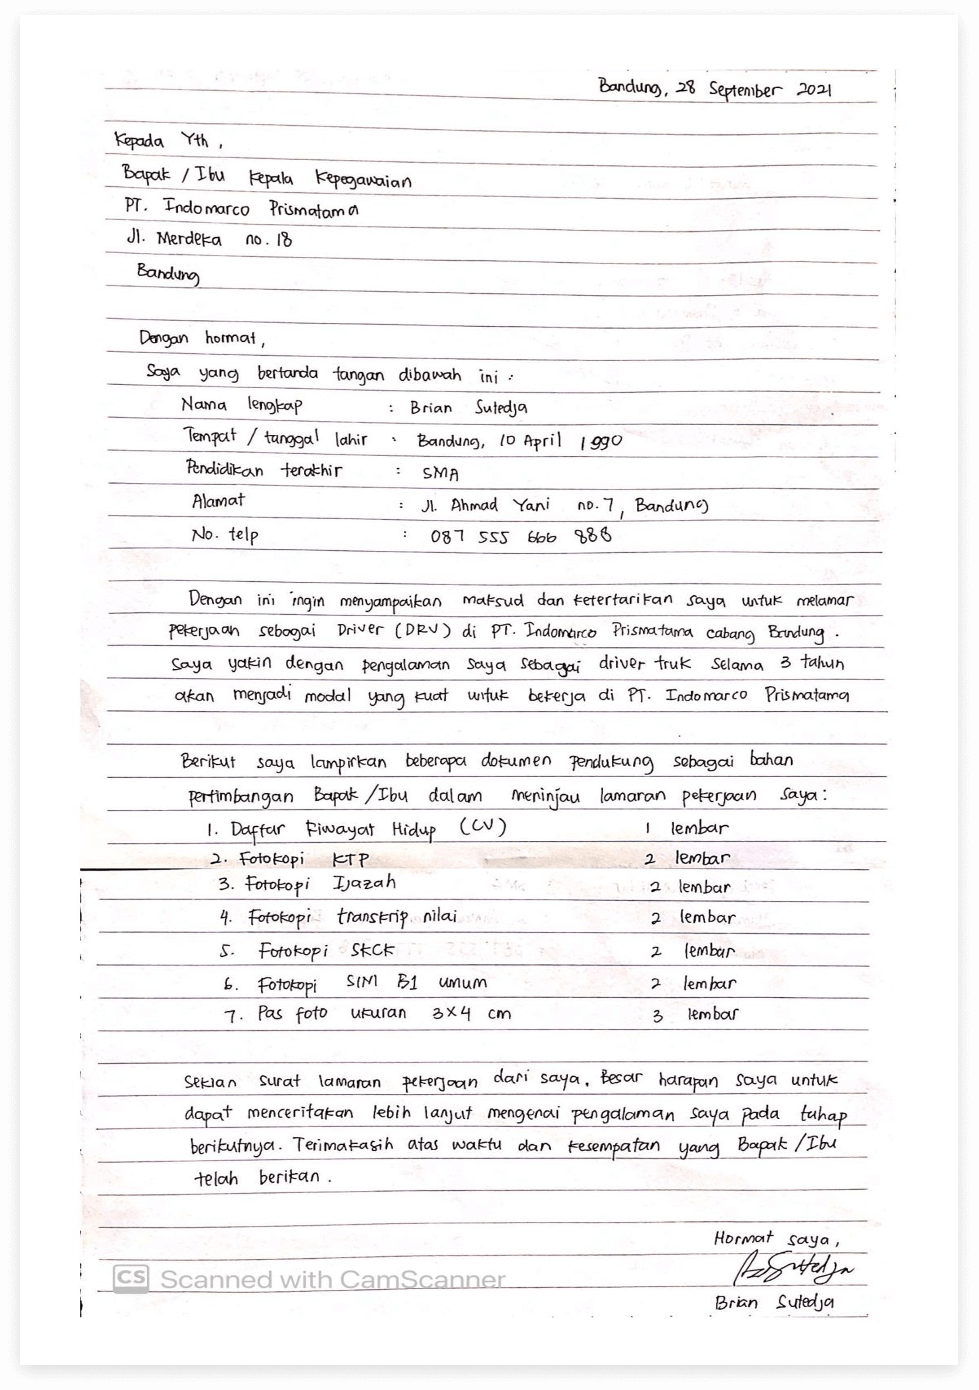 Bandung, 28 September 2021
Kepada Yth,
Bapak / Ibu Kepala Kepegawaian
PT. Indomarco Prismatama
Jl. Merdeka no. 18
Bandung
Dengan hormat,
Saya yang bertanda tangan dibawah ini :
Nama lengkap : Brian Sutedja
Tempat / tanggal lahir : Bandung, 10 April 1990
Pendidikan terakhir : SMA
Alamat : Jl. Ahmad Yani no. 7, Bandung
No. telp : 087 555 666 888
Dengan ini ingin menyampaikan maksud dan ketertarikan saya untuk melamar
pekerjaan sebagai Driver (DRV) di PT. Indomarco Prismatama cabang Bandung.
Saya yakin dengan pengalaman saya sebagai driver truk selama 3 tahun
akan menjadi modal yang kuat untuk bekerja di PT. Indomarco Prismatama
Berikut saya lampirkan beberapa dokumen pendukung sebagai bahan
pertimbangan Bapak /Ibu dalam meninjau lamaran pekerjaan saya:
1. Daftar Riwayat Hidup (CV) 1 lembar
2. Fotokopi KTP 2 lembar
3. Fotokopi Ijazah 2 lembar
4. Fotokopi transkrip nilai 2 lembar
5. Fotokopi SKCK 2 lembar
6. Fotokopi SIM B1 umum 2 lembar
7. Pas foto ukuran 3x4 cm 3 lembar
Sekian surat lamaran pekerjaan dari saya. Besar harapan saya untuk
dapat menceritakan lebih lanjut mengenai pengalaman saya pada tahap
berikutnya. Terimakasih atas waktu dan kesempatan yang Bapak /Ibu
telah berikan.
Hormat saya,
Sutedja
Brian Sutedja
CS Scanned with CamScanner